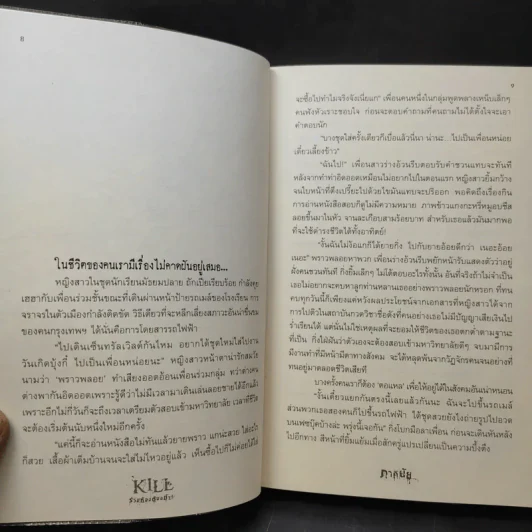 ๘
ในชีวิตของคนเรามีเรื่องไม่คาดฝันอยู่เสมอ...
หญิงสาวในชุดนักเรียนมัธยมปลาย ถักเปียเรียบร้อย กำลังคุย
เฮฮากับเพื่อนร่วมชั้นขณะที่เดินผ่านหน้าป้ายรถเมล์ของโรงเรียน การ
จราจรในตัวเมืองกำลังติดขัด วิธีเดียวที่จะหลีกเลี่ยงสภาวะอันน่าชื่นชม
ของคนกรุงเทพฯ ได้นั่นคือการโดยสารรถไฟฟ้า
"ไปเดินเซ็นทรัลเวิลด์กันไหม อยากได้ชุดใหม่ใส่งาน
วันเกิดบุ้งกี๋ ไปเป็นเพื่อนหน่อยนะ" หญิงสาวหน้าตาน่ารักสมวัย
นามว่า 'พราวพลอย' ทำเสียงออดอ้อนเพื่อนร่วมกลุ่ม ทว่าต่างคน
ต่างพากันอิดออดเพราะรู้ดีว่าไม่มีเวลามาเดินเล่นลอยชายได้อีกแล้ว
เพราะอีกไม่กี่วันก็จะถึงเวลาเตรียมตัวสอบเข้ามหาวิทยาลัย เวลาที่ชีวิต
จะต้องเริ่มต้นนับหนึ่งใหม่อีกครั้ง
"แค่นี้ก็อ่านหนังสือไม่ทันแล้วยายพราว แกน่ะสวย ใส่อะไร
ก็สวย เสื้อผ้าเต็มบ้านจนจะใส่ไม่ไหวอยู่แล้ว เห็นซื้อไปก็ไม่ค่อยได้ใส่
KILL
๙
จะซื้อไปทำไมจริงจังเนี่ยแก" เพื่อนคนหนึ่งในกลุ่มพูดพลางเหน็บเล็กๆ
คนฟังหัวเราะชอบใจ ก่อนจะตอบคำถามที่คนถามไม่ได้ตั้งใจจะเอา
คำตอบนัก
"บางชุดใส่ครั้งเดียวก็เบื่อแล้วนี่นา น่านะ...ไปเป็นเพื่อนหน่อย
เดี๋ยวเลี้ยงข้าว"
"ฉันไป!" เพื่อนสาวร่างอ้วนรีบตอบรับคำชวนแทบจะทันที
หลังจากทำท่าอิดออดเหมือนไม่อยากไปในตอนแรก หญิงสาวยิ้มกว้าง
จนใบหน้าที่ตึงเปรี๊ยะไปด้วยไขมันแทบจะปริออก พอคิดถึงเรื่องกิน
การอ่านหนังสือสอบก็ดูไม่มีความหมาย ภาพข้าวแกงกะหรี่หมูอบชีส
ลอยขึ้นมาในหัว จานละเกือบสามร้อยบาท สำหรับเธอแล้วมันมากพอ
ที่จะใช้ดำรงชีวิตได้ทั้งอาทิตย์!
"งั้นฉันไม่ง้อแกก็ได้ยายกิ่ง ไปกับยายอ้อยดีกว่า เนอะอ้อย
เนอะ" พราวพลอยหาพวก เพื่อนร่างอ้วนรีบพยักหน้ารับแสดงตัวว่าอยู่
ฝั่งคนชวนทันที
คบทุกวันนี้ก็เพียงแค่หวังผลประโยชน์จากเอกสารที่หญิงสาวได้จาก
การไปติวในสถาบันกวดวิชาชื่อดังที่คนอย่างเธอไม่มีปัญญาเสียเงินไป
ร่ำเรียนได้
ที่เป็น กิ่งฝันว่าตัวเองจะต้องสอบเข้ามหาวิทยาลัยดีๆ จบมามีการ
มีงานทำที่มีหน้ามีตาทางสังคม จะได้หลุดพ้นจากวัฏจักรคนจนอย่างที่
ทนอยู่มาตลอดชีวิตเสียที
บางครั้งคนเราก็ต้อง 'ตอแหล' เพื่อให้อยู่ได้ในสังคมอันเน่าหนอน
"งั้นเดี๋ยวแยกกันตรงนี้เลยแล้วกันนะ ฉันจะไปขึ้นรถเมล์
ส่วนพวกเธอสองคนก็ไปขึ้นรถไฟฟ้า ได้ชุดสวยยังไงถ่ายรูปไปอวด
บนเฟซบุ๊คบ้างล่ะ พรุ่งนี้เจอกัน" กิ่งโบกมือลาเพื่อน ก่อนจะเดินหันหลัง
ไปอีกทาง สีหน้าที่ยิ้มแย้มเมื่อสักครู่แปรเปลี่ยนเป็นความบึ้งตึง